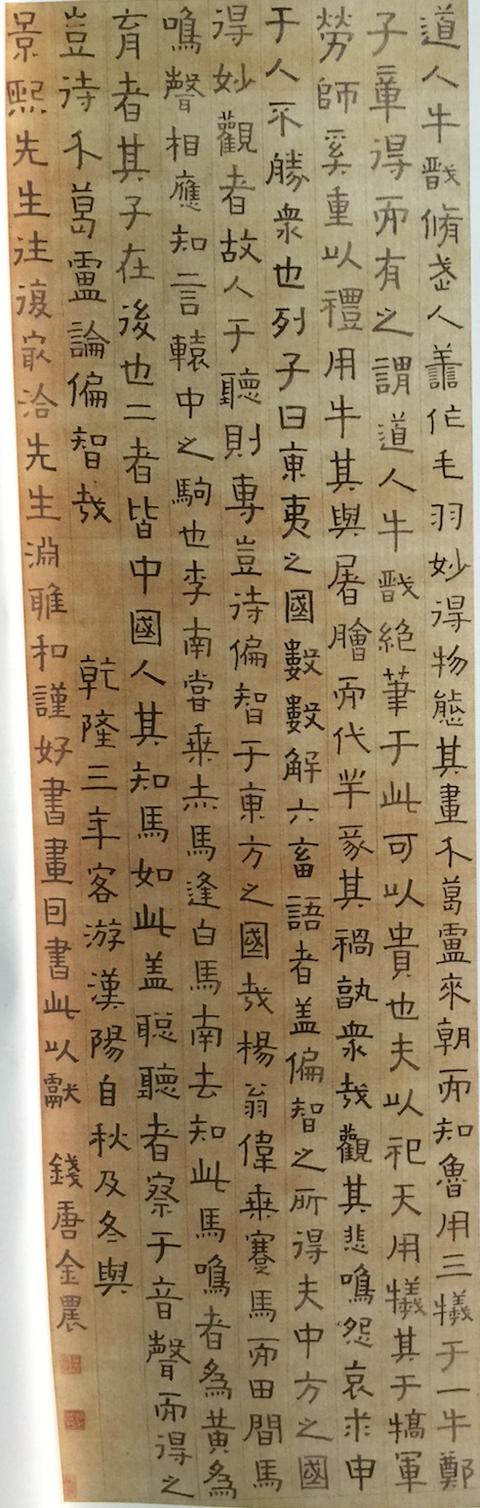 道人牛戩脩武人譱作毛羽妙得物態其畫介葛盧來朝而知魯用三犧于一牛鄭
子章得而有之謂道人牛戩絕筆于此可以貴也夫以祀天用犧其于犒軍
勞師奚重以禮用牛其與屠膾而代羊豕其禍孰衆哉觀其悲鳴怨哀求申
于人不勝衆也列子曰東夷之國數數解六畜語者盖偏智之所得夫中方之國
得妙觀者故人于聽則專豈待偏智于東方之國哉楊翁偉乘蹇馬而田間馬
鳴聲相應知言轅中之駒也李南嘗乘赤馬逢白馬南去知此馬鳴者為黃為
育者其子在後也二者皆中國人其知馬如此盖聰聽者察于音聲而得之
豈待介葛盧論偏智哉 乾隆三年客游漢陽自秋及冬與
景熙先生往復㝡洽先生淵雅和謹好書畫因書此以獻 錢唐金農